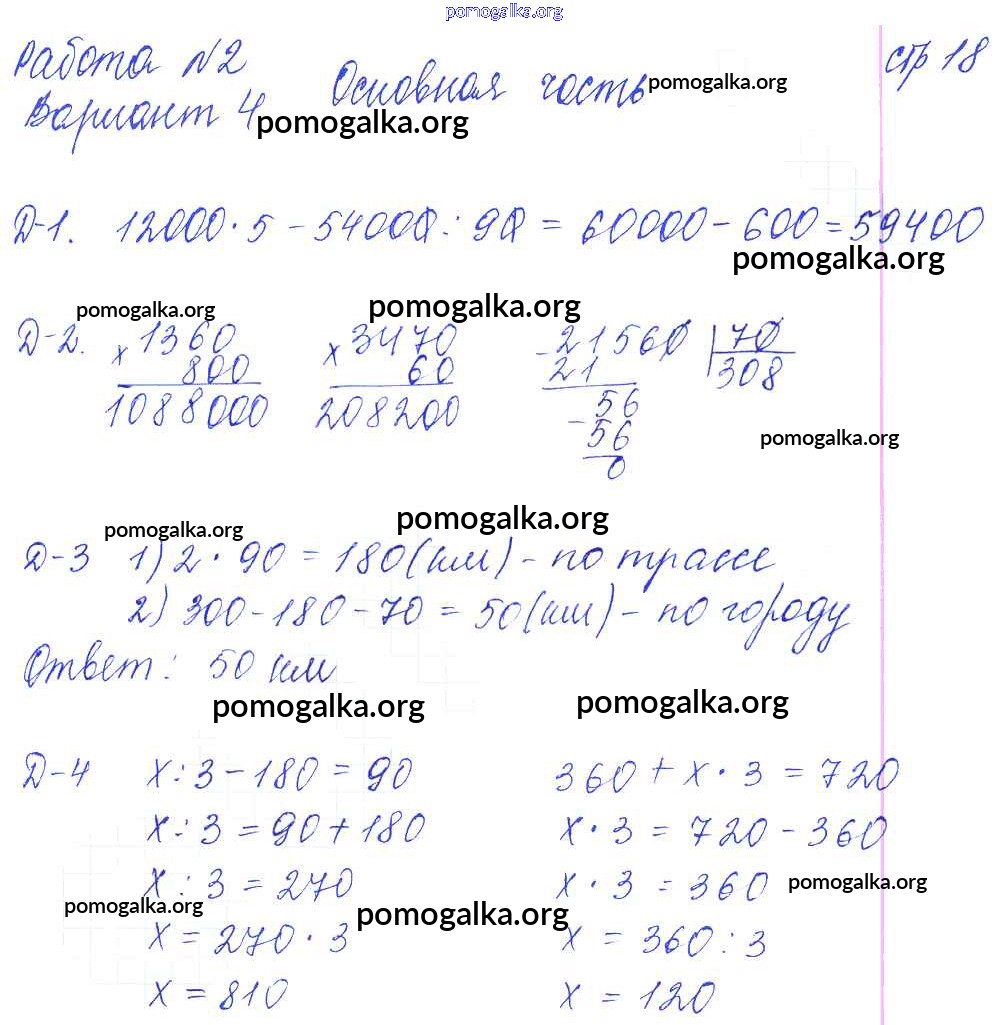 pomogalka.org
Работа №2 стр 18
Основная часть pomogalka.org
Вариант 4 pomogalka.org
Д-1. 12000·5 - 54000 : 90 = 60000 - 600 = 59400
pomogalka.org
pomogalka.org pomogalka.org
Д-2. × 1360 × 3470 - 21560 | 70
800 60 21 308
1088000 208200 56
- 56
pomogalka.org
0
pomogalka.org pomogalka.org
Д-3 1) 2 · 90 = 180 (км) - по трассе
2) 300 - 180 - 70 = 50 (км) - по городу
Ответ: 50 км
pomogalka.org pomogalka.org
Д-4 x : 3 - 180 = 90 360 + x · 3 = 720
x : 3 = 90 + 180 x · 3 = 720 - 360
x : 3 = 270 x · 3 = 360 pomogalka.org
pomogalka.org pomogalka.org
x = 270 · 3 x = 360 : 3
x = 810 x = 120